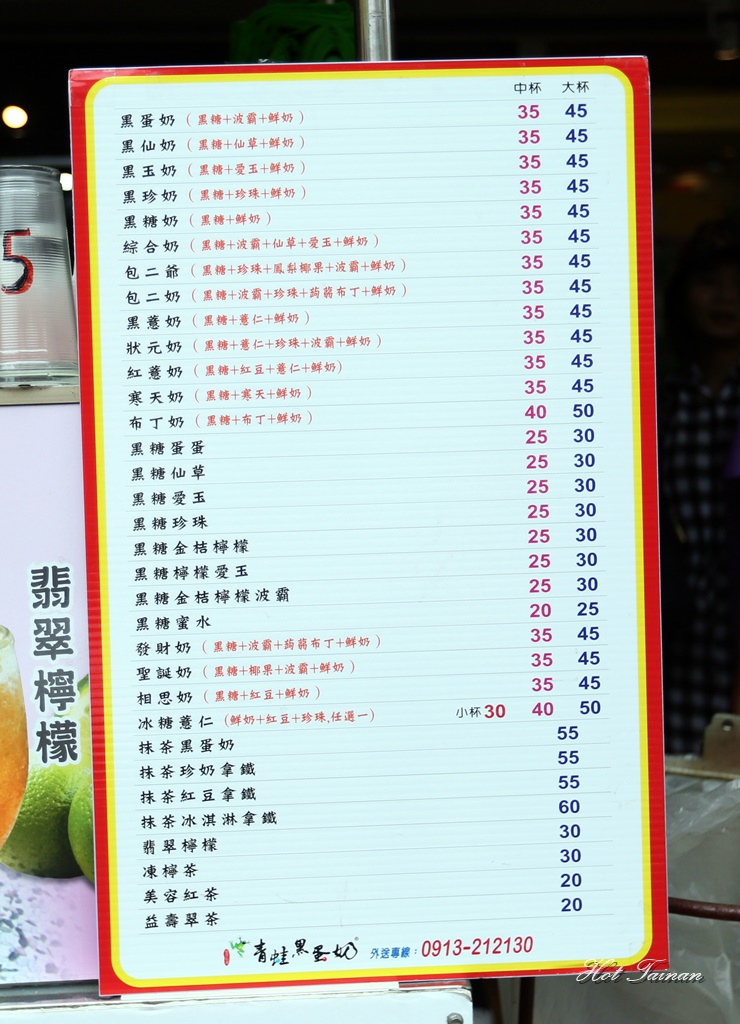 中杯 大杯
黑蛋奶 (黑糖+波霸+鮮奶) 35 45
黑仙奶 (黑糖+仙草+鮮奶) 35 45
黑玉奶 (黑糖+愛玉+鮮奶) 35 45
黑珍奶 (黑糖+珍珠+鮮奶) 35 45
黑糖奶 (黑糖+鮮奶) 35 45
綜合奶 (黑糖+波霸+仙草+愛玉+鮮奶) 35 45
包二爺 (黑糖+珍珠+鳳梨椰果+波霸+鮮奶) 35 45
包二奶 (黑糖+波霸+珍珠+蒟蒻布丁+鮮奶) 35 45
黑薏奶 (黑糖+薏仁+鮮奶) 35 45
狀元奶 (黑糖+薏仁+珍珠+波霸+鮮奶) 35 45
紅薏奶 (黑糖+紅豆+薏仁+鮮奶) 35 45
寒天奶 (黑糖+寒天+鮮奶) 35 45
布丁奶 (黑糖+布丁+鮮奶) 40 50
黑糖蛋蛋 25 30
黑糖仙草 25 30
黑糖愛玉 25 30
黑糖珍珠 25 30
黑糖金桔檸檬 25 30
黑糖檸檬愛玉 25 30
黑糖金桔檸檬波霸 25 30
黑糖蜜水 20 25
發財奶 (黑糖+波霸+蒟蒻布丁+鮮奶) 35 45
聖誕奶 (黑糖+椰果+波霸+鮮奶) 35 45
相思奶 (黑糖+紅豆+鮮奶) 35 45
冰糖薏仁 (鮮奶+紅豆+珍珠,任選一) 小杯30 40 50
抹茶黑蛋奶 55
抹茶珍奶拿鐵 55
抹茶紅豆拿鐵 55
抹茶冰淇淋拿鐵 60
翡翠檸檬 30
凍檸茶 30
美容紅茶 20
益壽翠茶 20
青蛙黑蛋奶 外送專線:0913-212130
5
翡翠檸檬
Hot Tainan